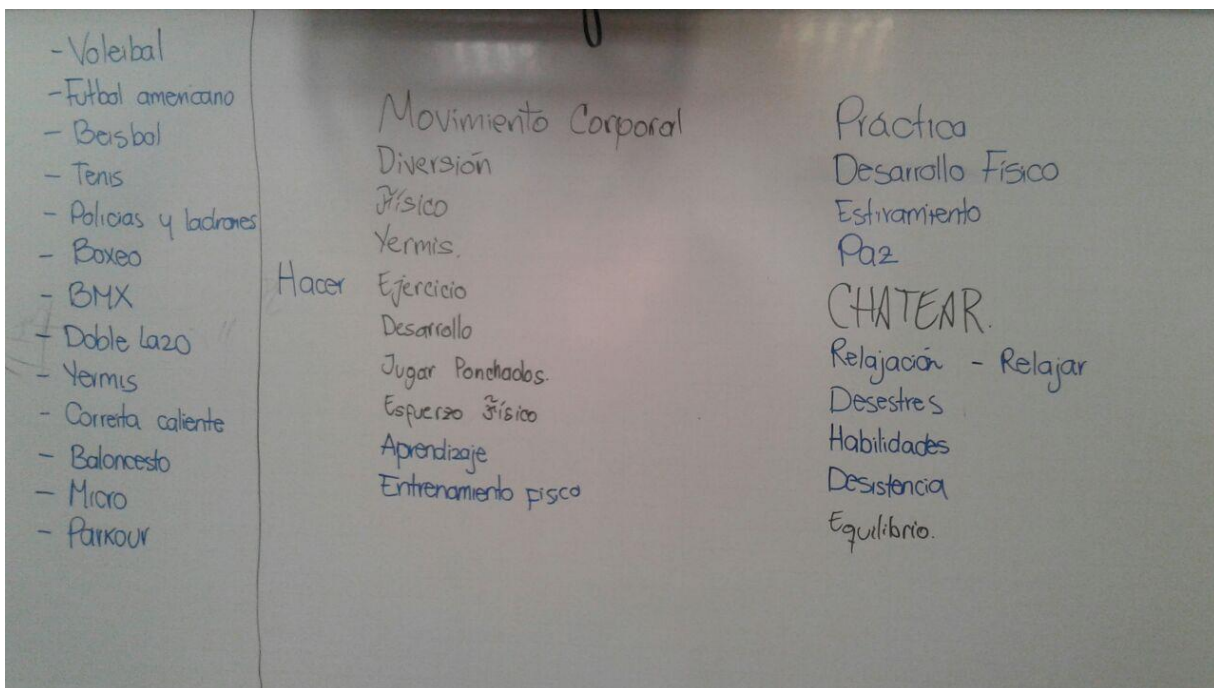 - Voleibal
- Futbol americano
- Beisbol
- Tenis
- Policias y ladrones
- Boxeo
- BMX
- Doble Lazo
- Yermis
- Correita caliente
- Baloncesto
- Micro
- Parkour
Movimiento Corporal
Diversión
Físico
Yermis.
Hacer Ejercicio
Desarrollo
Jugar Ponchados.
Esfuerzo Físico
Aprendizaje
Entrenamiento Fisco
Práctica
Desarrollo Físico
Estiramiento
Paz
CHATEAR.
Relajación - Relajar
Desestres
Habilidades
Desistencia
Equilibrio.